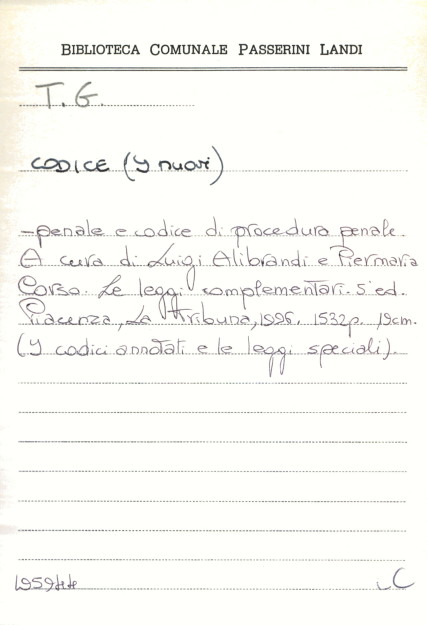 BIBLIOTECA COMUNALE PASSERINI LANDI
T.G.
CODICE (I nuovi)
-penale e codice di procedura penale.
A cura di Luigi Alibrandi e Piermaria
Corso. Le leggi complementari. 5 ed.
Piacenza, La Tribuna, 1996. 1532p. 19cm.
(I codici annotati e le leggi speciali).
C